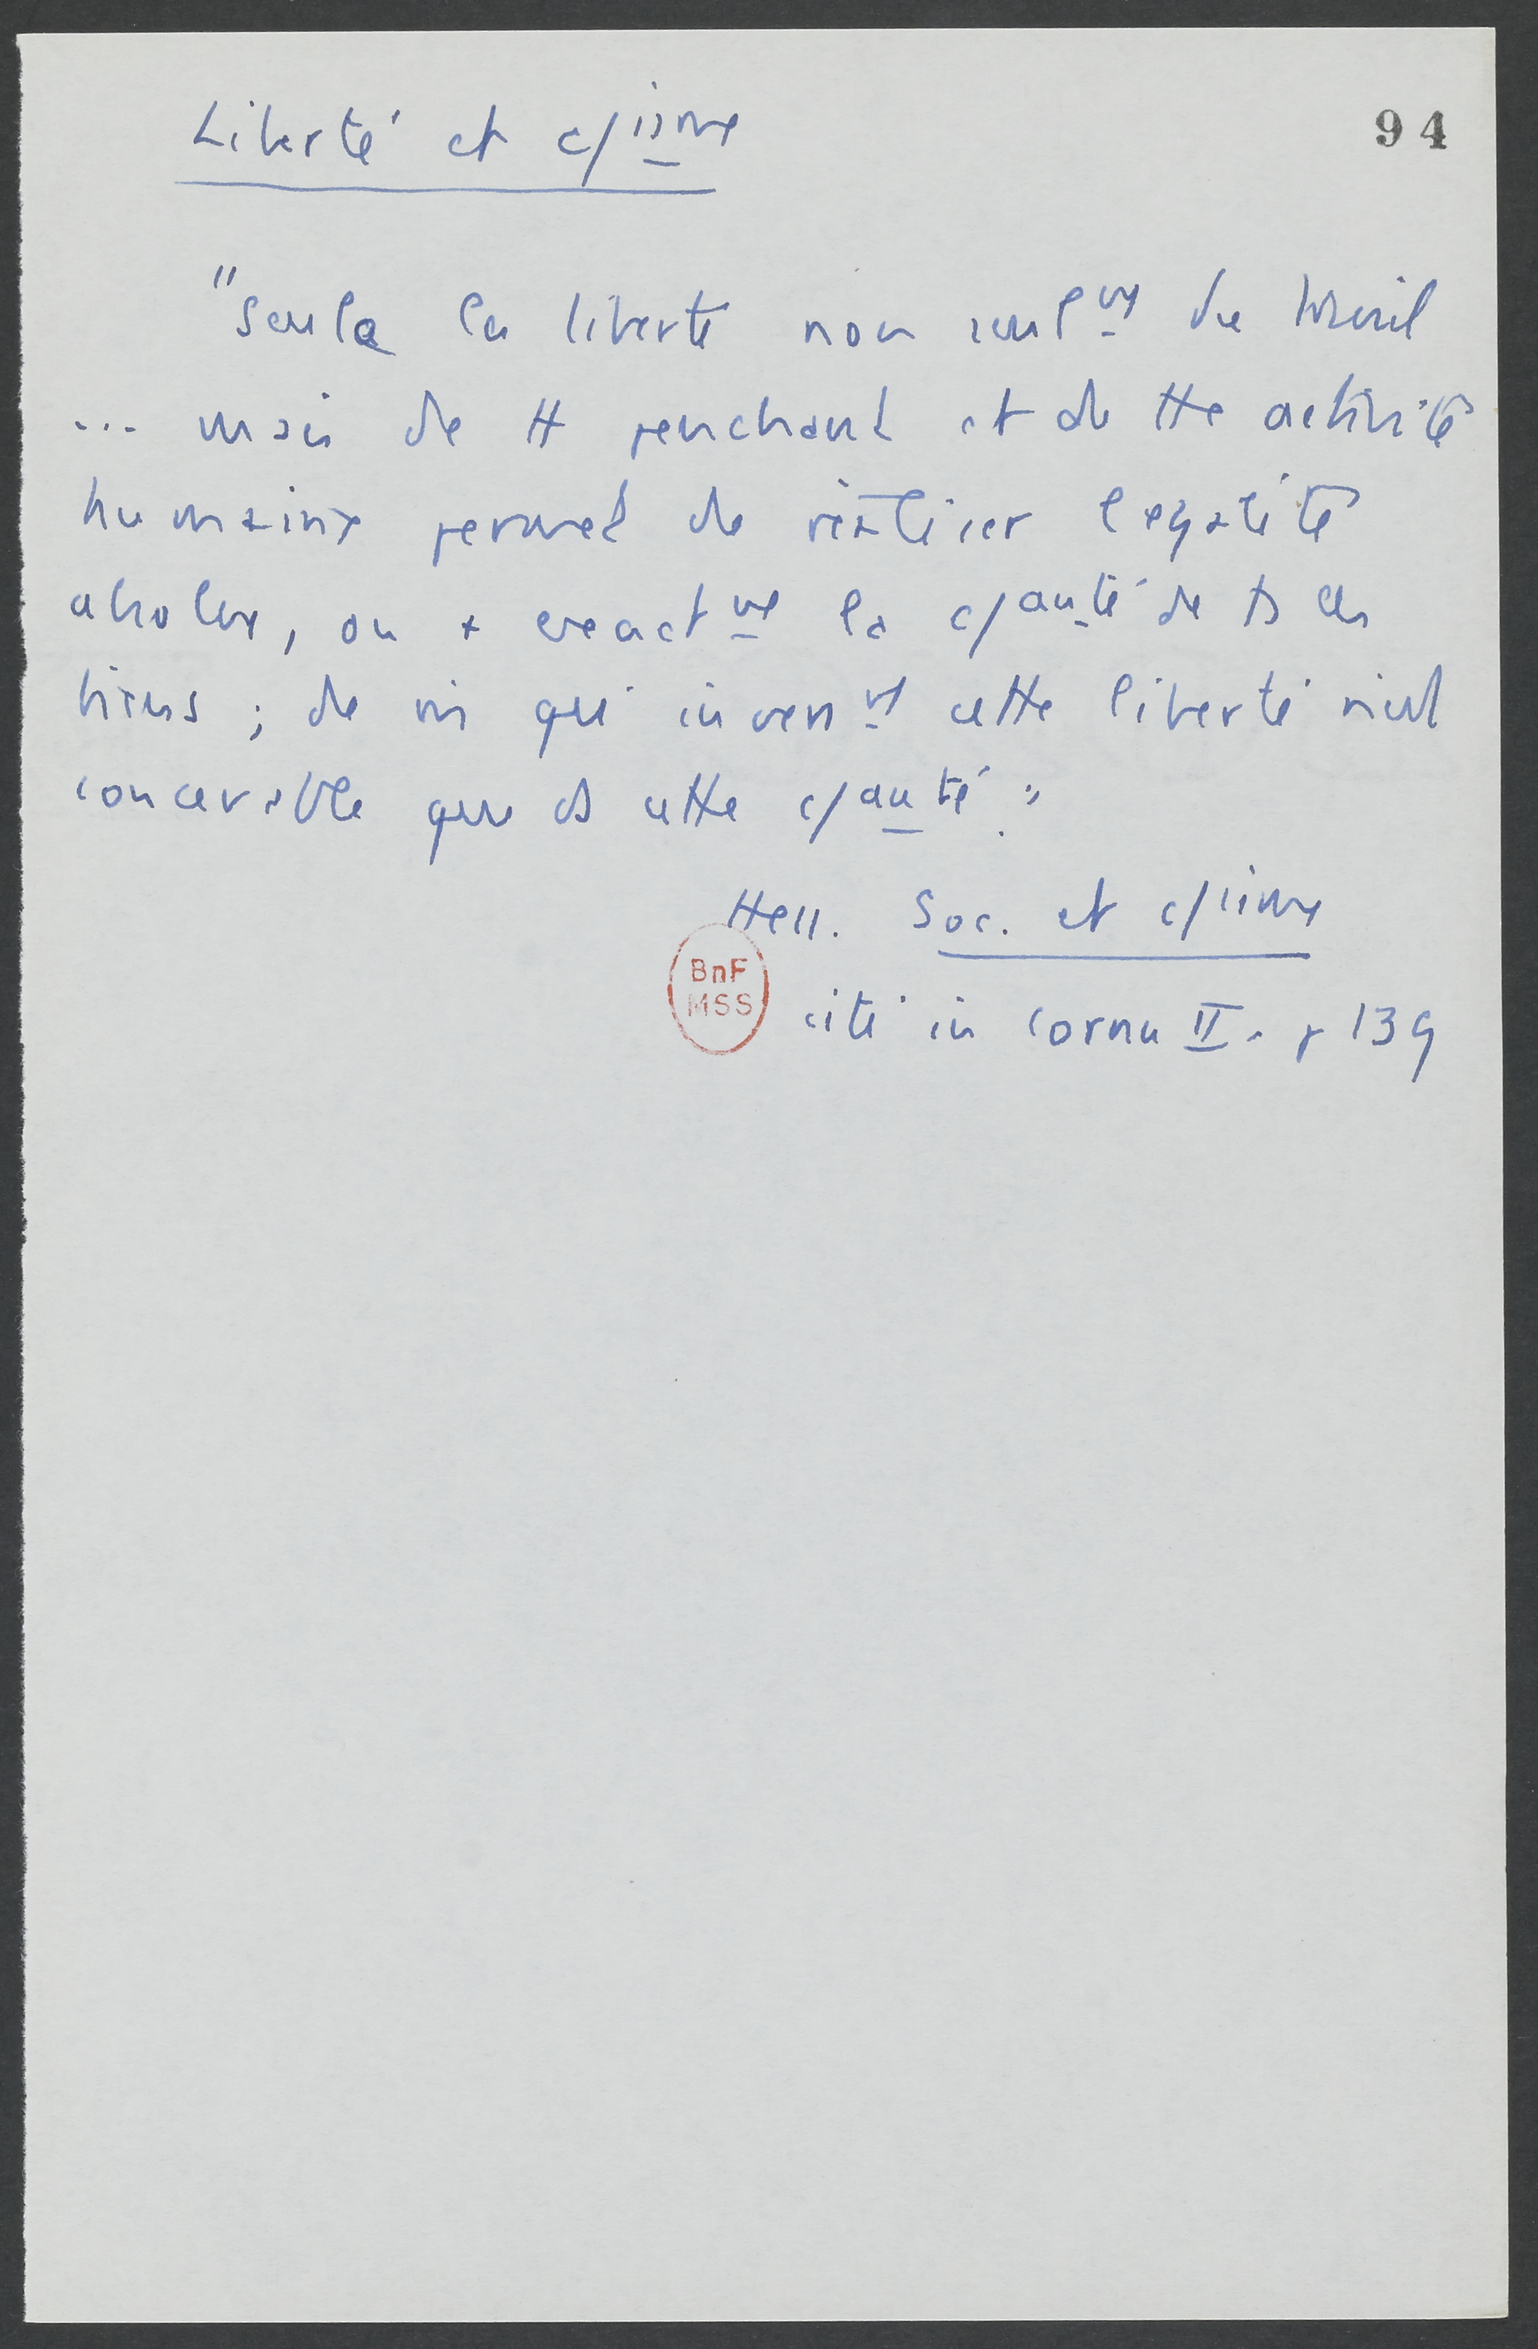 Liberté et c/isme
94
"Seule la liberté non seulmt du travail
... mais de tt penchant et de tte activité
humaine permet de réaliser l'égalité
absolue, ou + exactmt la c/auté de ts les
biens ; de m̂ qu' inversmt cette liberté n'est
concevable que ds cette c/auté."
Hess. Soc. et c/isme
BnF
MSS
cité in Cornu II. p 139